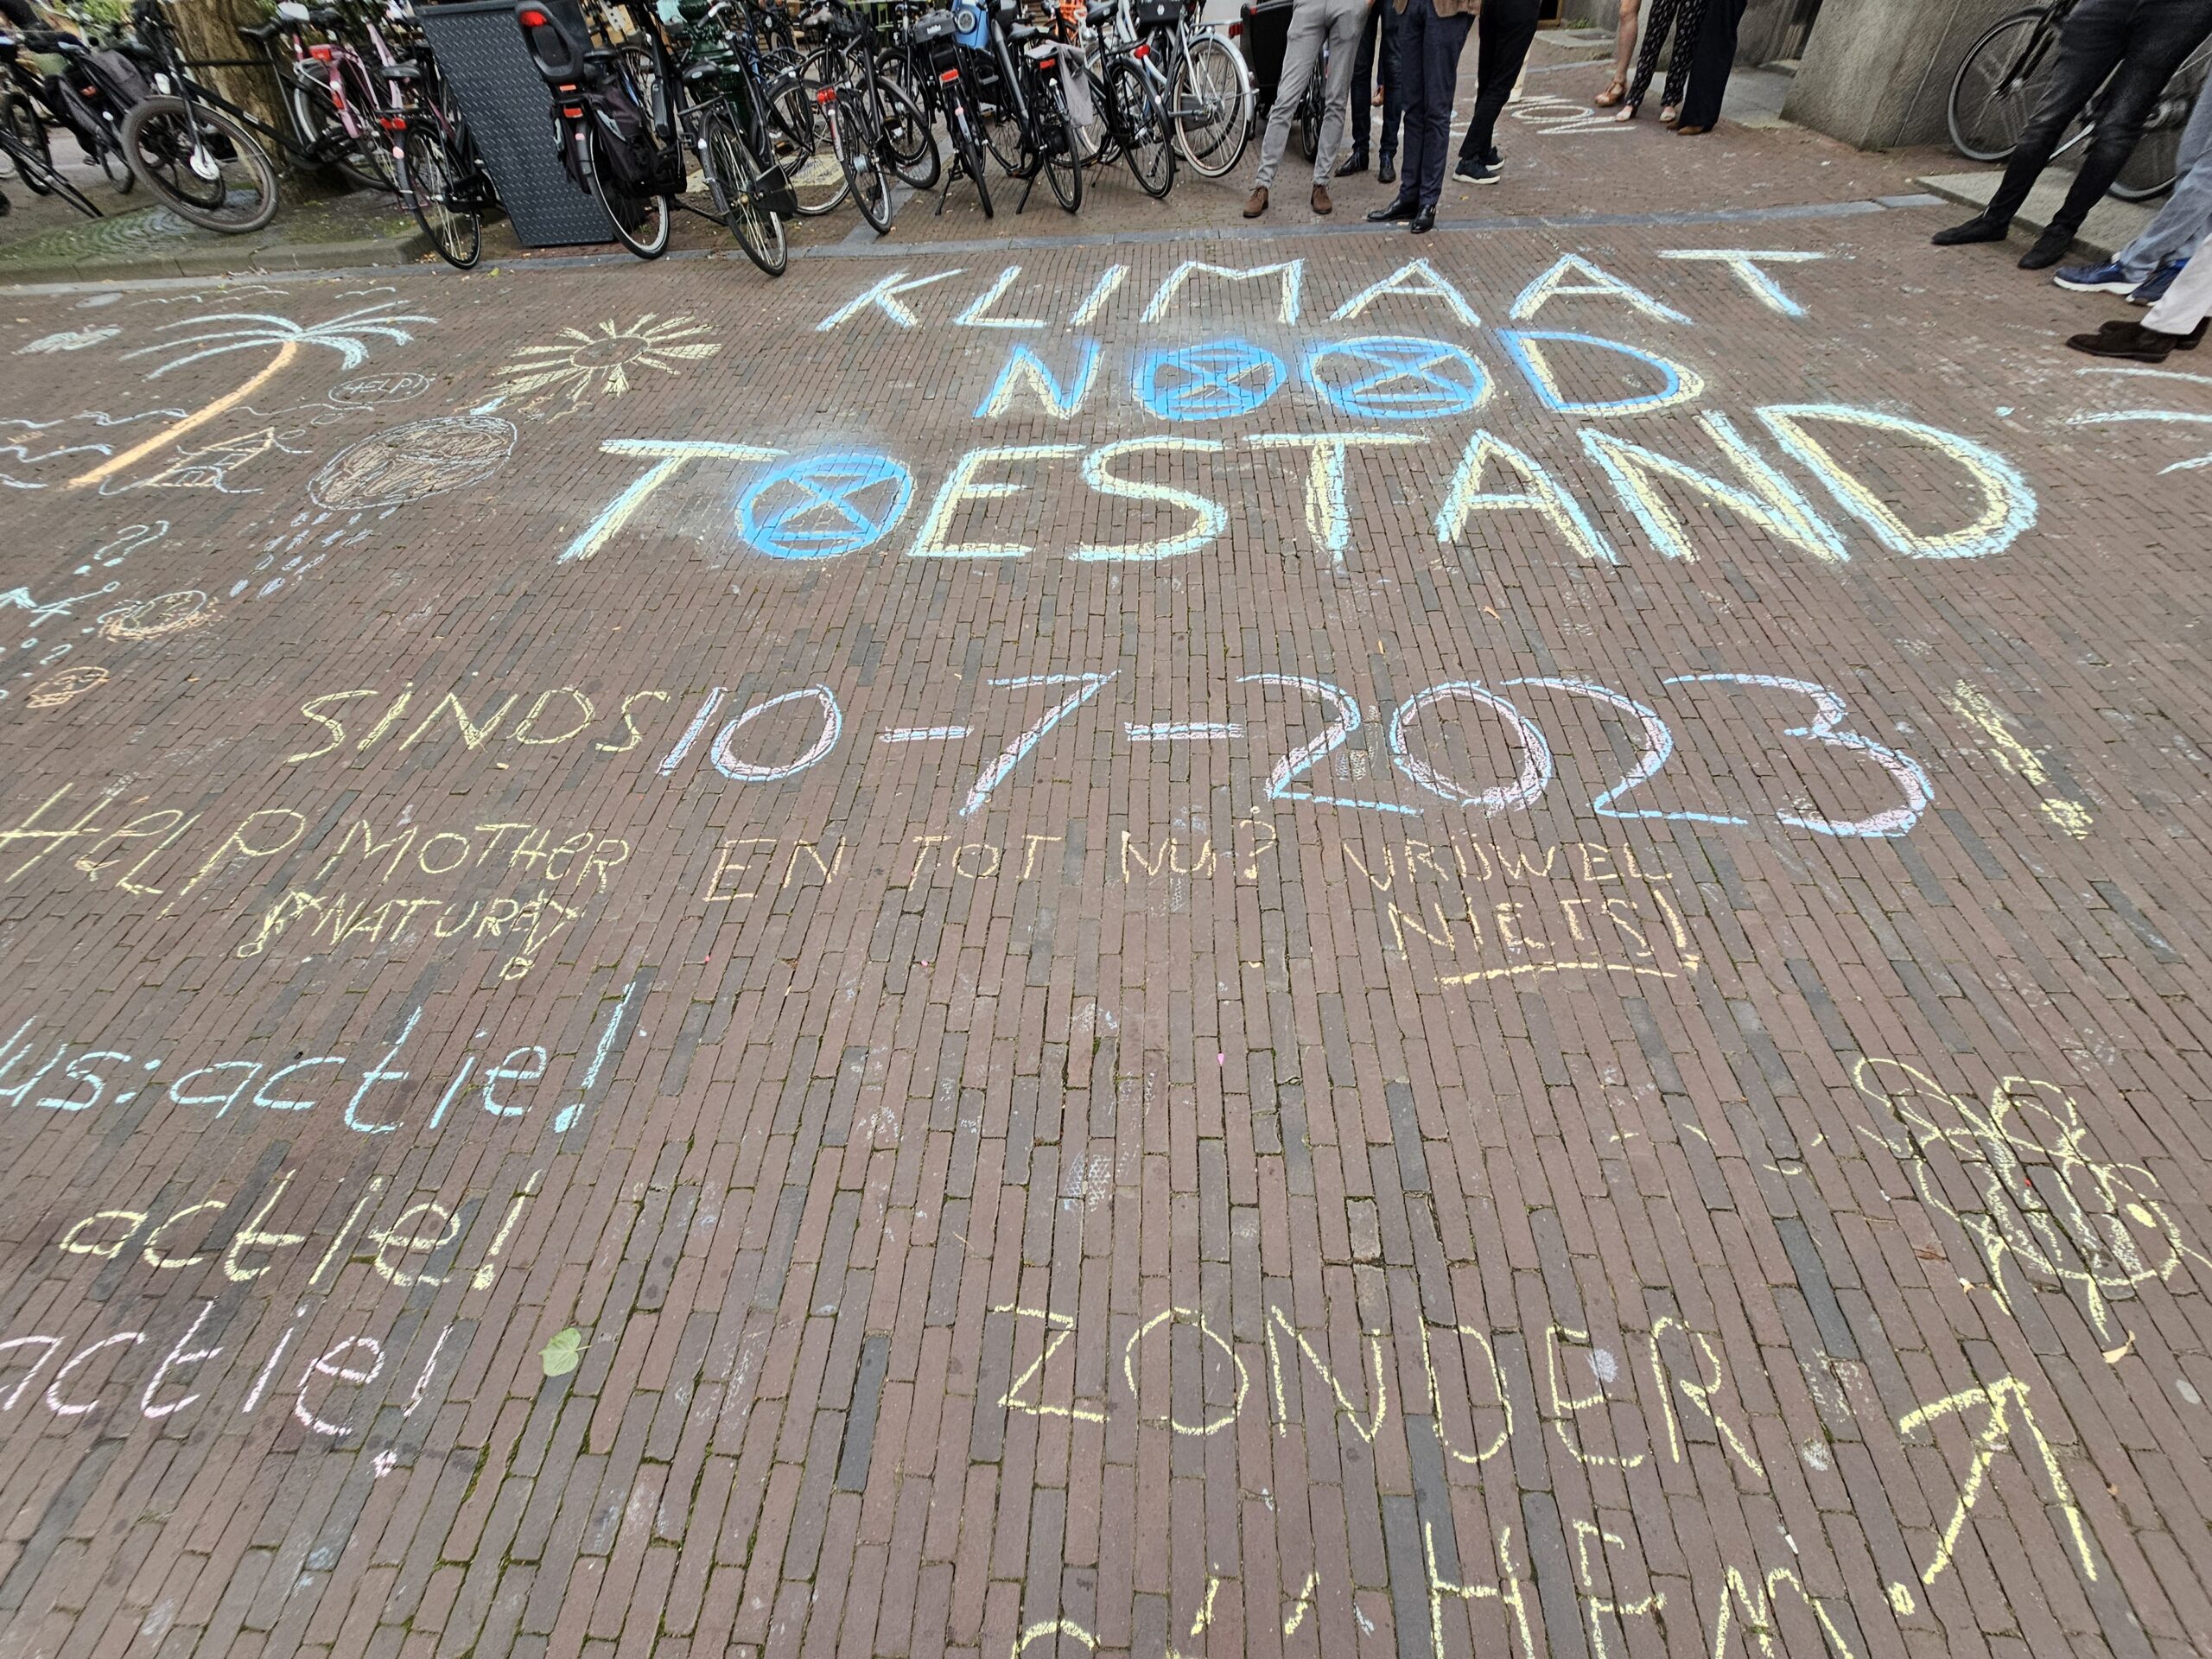 KLIMAAT
NOOD
TOESTAND
HELP
SINDS 10-7-2023!
HELP MOTHER
NATURE!
EN TOT NU? VRIJWEL
NIETS!
us: actie!
actie!
actie!
ZONDER
HEM